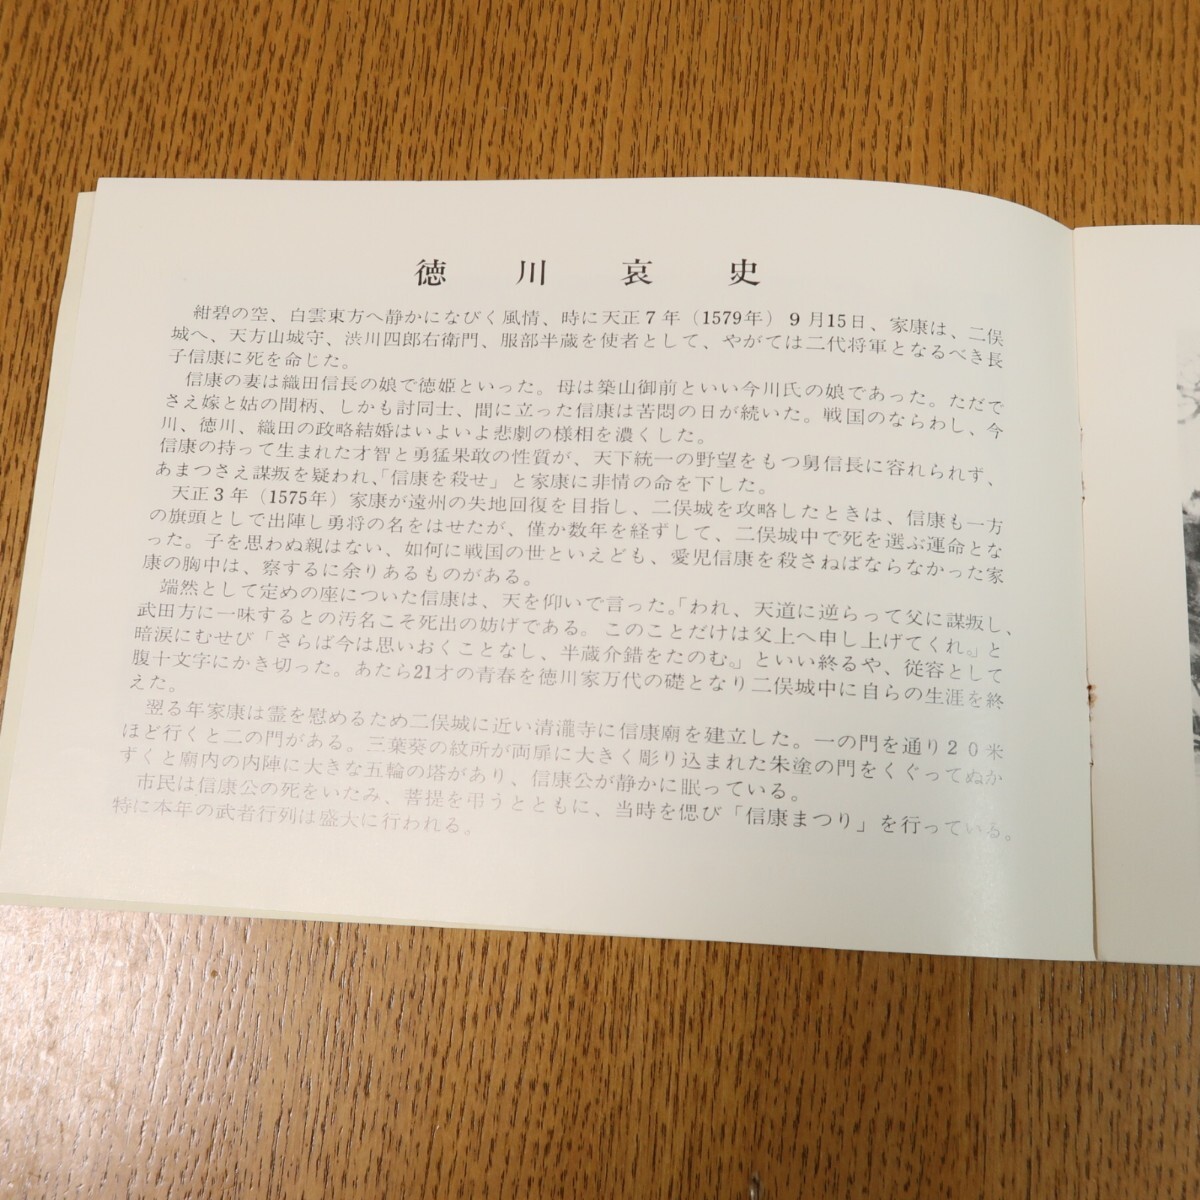 徳川哀史
紺碧の空、白雲東方へ静かになびく風情、時に天正7年（1579年）9月15日、家康は、二俣
城へ、天方山城守、渋川四郎右衛門、服部半蔵を使者として、やがては二代将軍となるべき長
子信康に死を命じた。
信康の妻は織田信長の娘で徳姫といった。母は築山御前といい今川氏の娘であった。ただで
さえ嫁と姑の間柄、しかも討同士、間に立った信康は苦悶の日が続いた。戦国のならわし、今
川、徳川、織田の政略結婚はいよいよ悲劇の様相を濃くした。
信康の持って生まれた才智と勇猛果敢の性質が、天下統一の野望をもつ舅信長に容れられず、
あまつさえ謀叛を疑われ、「信康を殺せ」と家康に非情の命を下した。
天正3年（1575年）家康が遠州の失地回復を目指し、二俣城を攻略したときは、信康も一方
の旗頭として出陣し勇将の名をはせたが、僅か数年を経ずして、二俣城中で死を選ぶ運命とな
った。子を思わぬ親はない、如何に戦国の世といえども、愛児信康を殺さねばならなかった家
康の胸中は、察するに余りあるものがある。
端然として定めの座についた信康は、天を仰いで言った。「われ、天道に逆らって父に謀叛し、
武田方に一味するとの汚名こそ死出の妨げである。このことだけは父上へ申し上げてくれ。」と
暗涙にむせび「さらば今は思いおくことなし、半蔵介錯をたのむ。」といい終るや、従容として
腹十文字にかき切った。あたら21才の青春を徳川家万代の礎となり二俣城中に自らの生涯を終
えた。
翌る年家康は霊を慰めるため二俣城に近い清瀧寺に信康廟を建立した。一の門を通り20米
ほど行くと二の門がある。三葉葵の紋所が両扉に大きく彫り込まれた朱塗の門をくぐってぬか
ずくと廟内の内陣に大きな五輪の塔があり、信康公が静かに眠っている。
市民は信康公の死をいたみ、菩提を弔うとともに、当時を偲び「信康まつり」を行っている。
特に本年の武者行列は盛大に行われる。